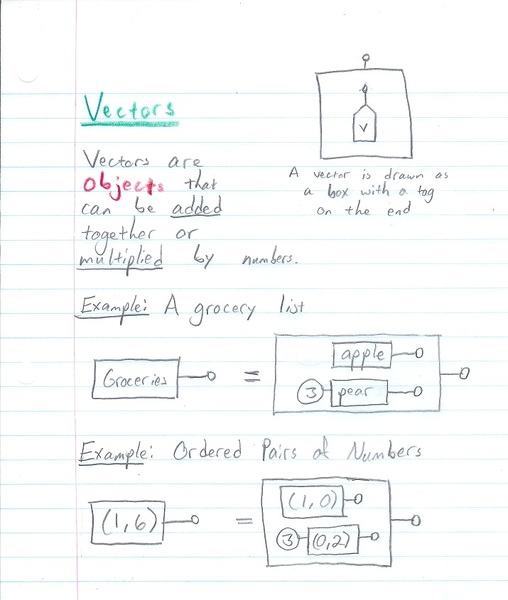 Vectors
V
A vector is drawn as
a box with a tag
on the end
Vectors are
objects that
can be added
together or
multiplied by numbers.
Example: A grocery list
Groceries = apple
3 pear
Example: Ordered Pairs of Numbers
(1,6) = (1,0)
3 (0,2)